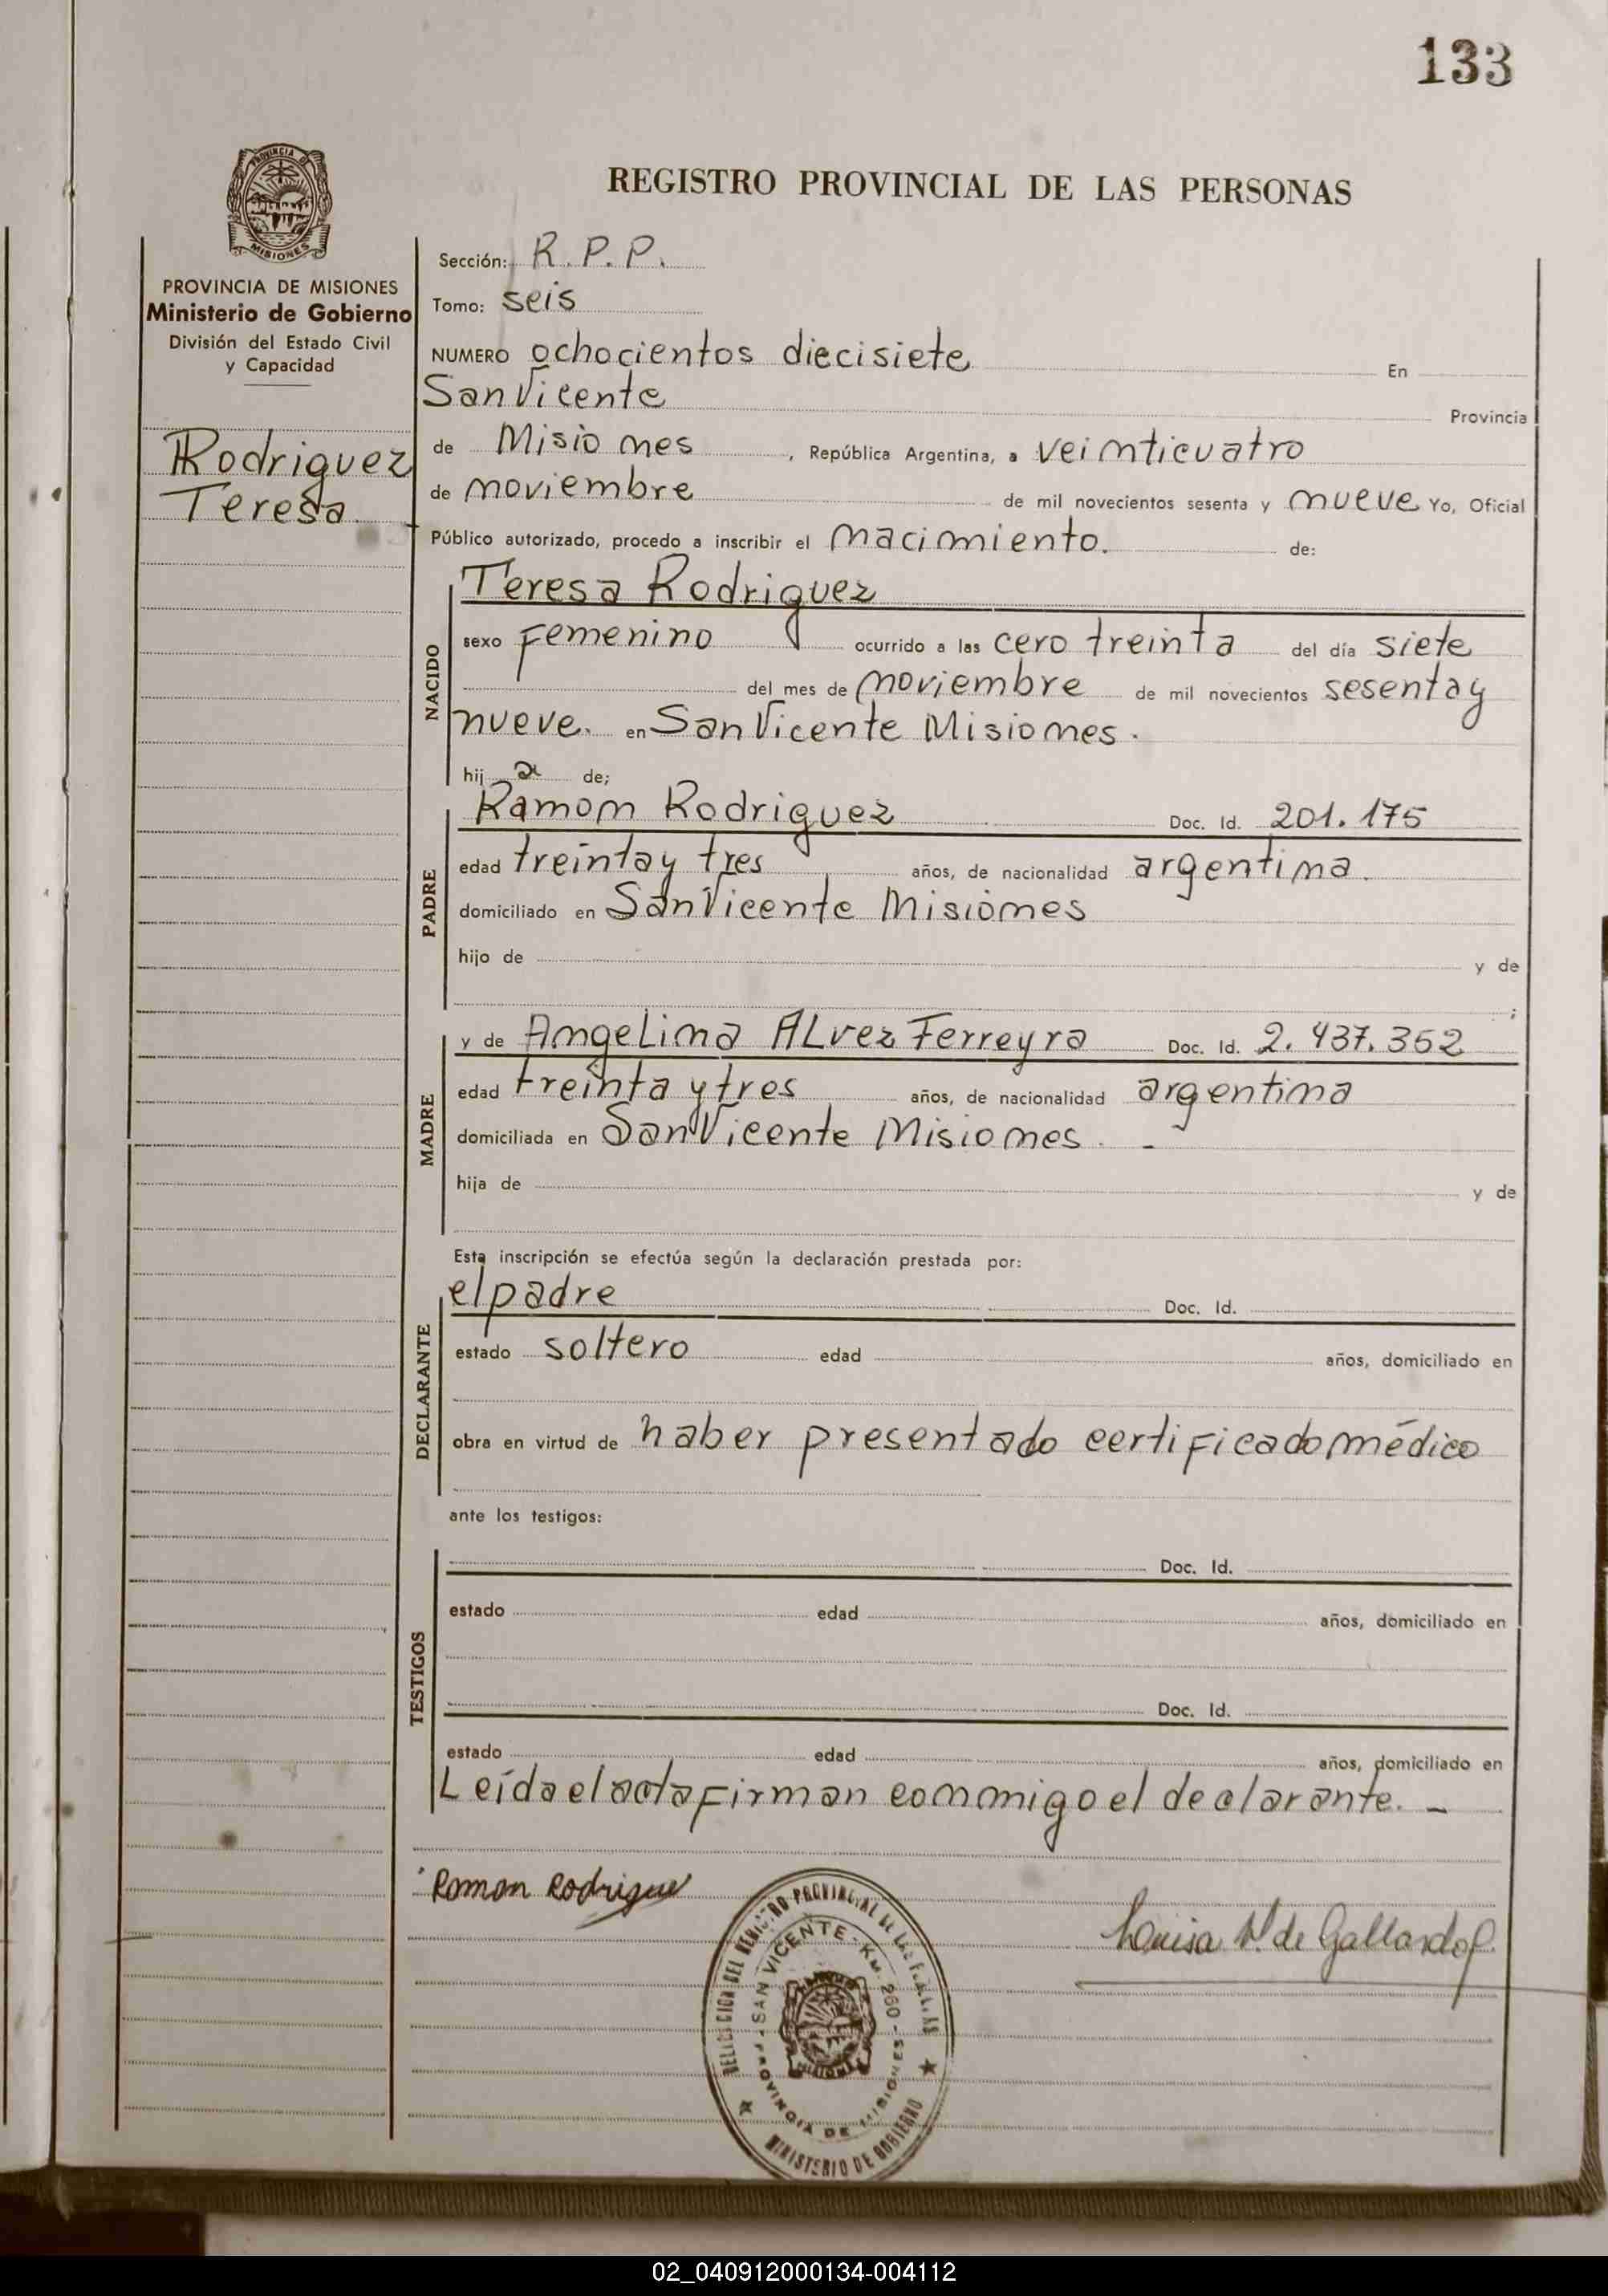 133
PROVINCIA DE
MISIONES
REGISTRO PROVINCIAL DE LAS PERSONAS
PROVINCIA DE MISIONES
Ministerio de Gobierno
División del Estado Civil
y Capacidad
Rodriguez
Teresa
Sección: R. P. P.
Tomo: seis
NUMERO ochocientos diecisiete En
San Vicente Provincia
de Misiones, República Argentina, a veinticuatro
de noviembre de mil novecientos sesenta y nueve Yo, Oficial
Público autorizado, procedo a inscribir el nacimiento. de:
NACIDO
Teresa Rodriguez
sexo Femenino ocurrido a las cero treinta del día siete
del mes de noviembre de mil novecientos sesenta y
nueve. en San Vicente Misiones.
hij a de;
PADRE
Ramon Rodriguez Doc. Id. 201.175
edad treinta y tres años, de nacionalidad argentina.
domiciliado en San Vicente Misiones
hijo de y de
;
MADRE
y de Angelina ALvez Ferreyra Doc. Id. 2.437.352
edad treinta y tres años, de nacionalidad argentina
domiciliada en San Vicente Misiones. -
hija de y de
Esta inscripción se efectúa según la declaración prestada por:
DECLARANTE
el padre Doc. Id.
estado soltero edad años, domiciliado en
obra en virtud de haber presentado certificado médico
ante los testigos:
TESTIGOS
Doc. Id.
estado edad años, domiciliado en
Doc. Id.
estado edad años, domiciliado en
Leída el acta firman conmigo el declarante. -
Roman Rodrigue
Louisa N. de Gallardo
DELEGACION DEL REGISTRO PROVINCIAL DE LAS PERSONAS
SAN VICENTE - KM. 260 -
PROVINCIA DE MISIONES
MINISTERIO DE GOBIERNO
02_040912000134-004112